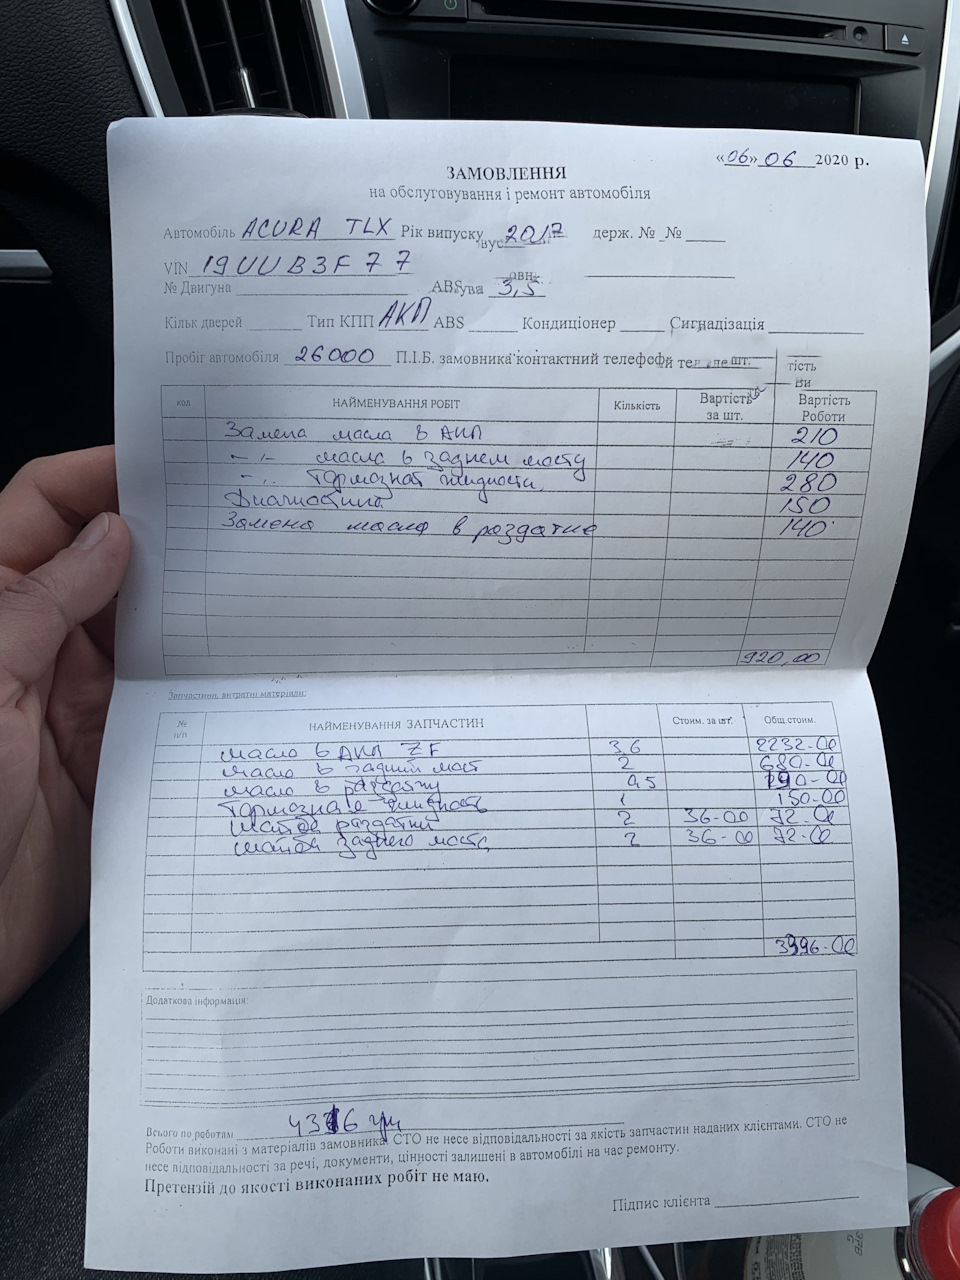 «06» 06 2020 р.
ЗАМОВЛЕННЯ
на обслуговування і ремонт автомобіля
Автомобіль ACURA TLX Рік випуску 2017 держ. № _№
VIN 19UUB3F77
№ Двигуна ABS ува 3,5
Кільк дверей Тип КПП АКП ABS Кондиціонер Сигнадізація
Пробіг автомобіля 26000 П.І.Б. замовника контактний телефо шт. тість
ви
кол НАЙМЕНУВАННЯ РОБІТ Кількість Вартість за шт. Вартість Роботи
Замена масла в АКП 210
-"- масла в заднем мосту 140
-"- тормозная жидкость 280
Диагностика 150
Замена масла в раздатке 140
920,00
Запчастини, витратні матеріали:
№ п/п НАЙМЕНУВАННЯ ЗАПЧАСТИН Стоим. за шт. Общ.стоим.
масло в АКП ZF 3,6 2232-00
масло в задний мост 2 680-00
масло в раздатку 0,5 190-00
Тормозная жидкость 1 150-00
шайбы раздатки 2 36-00 72-00
шайбы заднего моста 2 36-00 72-00
3396-00
Додаткова інформація:
Всього по роботам 4316 грн
Роботи виконані з матеріалів замовника. СТО не несе відповідальності за якість запчастин наданих клієнтами. СТО не
несе відповідальності за речі, документи, цінності залишені в автомобілі на час ремонту.
Претензій до якості виконаних робіт не маю.
Підпис клієнта